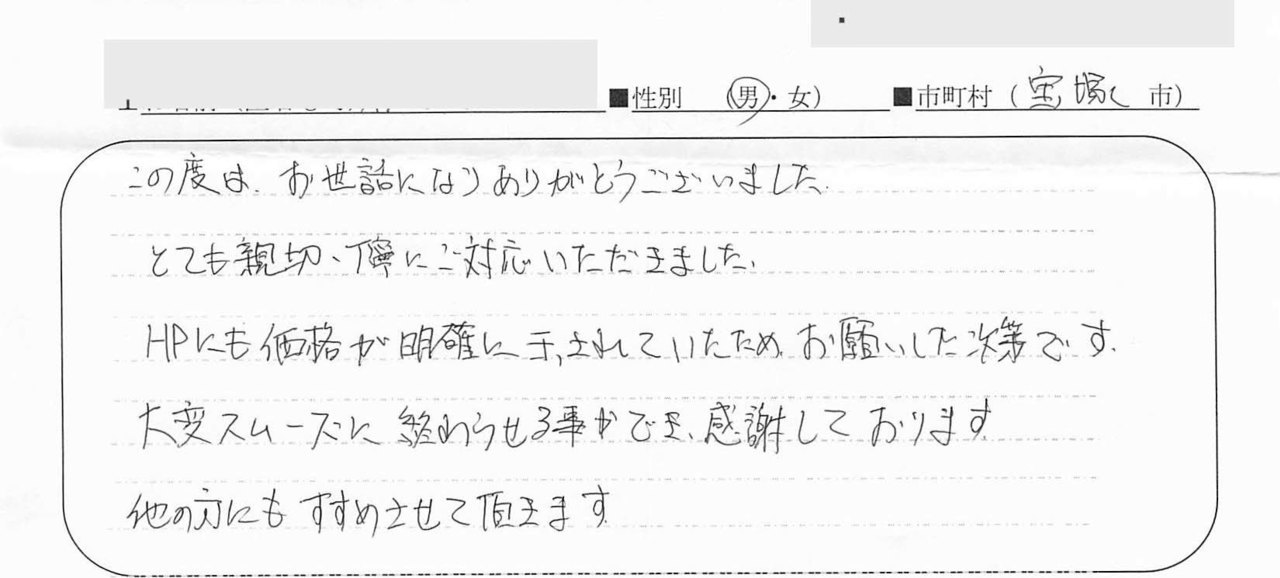 ■性別 (男・女) ■市町村 (宝塚 市)
この度は、お世話になりありがとうございました。
とても親切、丁寧にご対応いただきました。
HPにも価格が明確に示されていたため、お願いした次第です。
大変スムーズに終わらせる事ができ、感謝しております
他の方にもすすめさせて頂きます